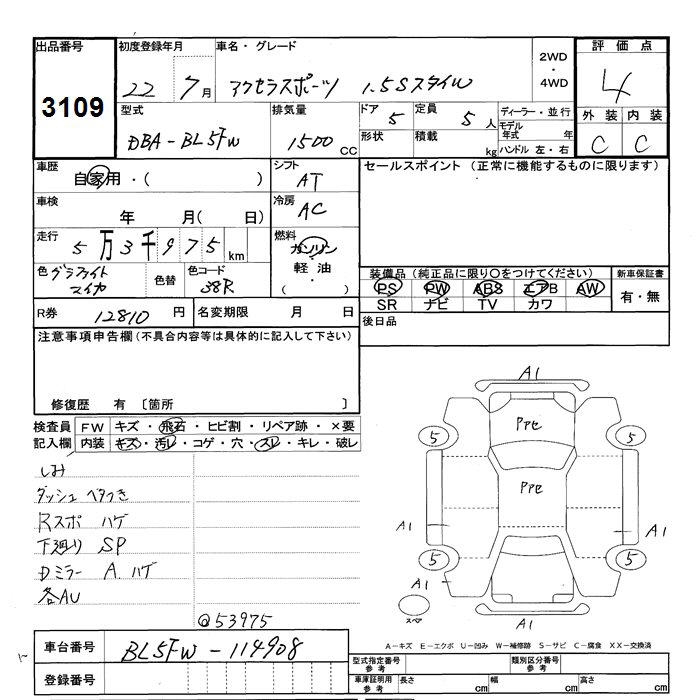 出品番号 初度登録年月 車名・グレード 2WD ・ 4WD 評価点
3109 22 7月 アクセラスポーツ 1.5Sスタイル 4
型式 排気量 ドア 5 定員 5人 ディーラー・並行 外装 内装
DBA-BL5FW 1500CC 形状 積載 kg モデル年式 年 C C
ハンドル 左・右
車歴 自家用・( ) シフト AT セールスポイント (正常に機能するものに限ります)
車検 年 月( 日) 冷房 AC
走行 5万3千975km 燃料 ガソリン・軽油・( )
色 グラファイトマイカ 色替 色コード 38R
装備品(純正品に限り○をつけてください) 新車保証書
PS PW ABS エアB AW 有・無
SR ナビ TV カワ
R券 12810円 名変期限 月 日 後日品
注意事項申告欄(不具合内容等は具体的に記入して下さい)
修復歴 有 〔箇所 〕
検査員 FW キズ・飛石・ヒビ割・リペア跡・×要
記入欄 内装 キズ・汚レ・コゲ・穴・スレ・キレ・破レ
しみ
ダッシュ ベタつき
Rスポ ハゲ
下廻り SP
Dミラー A.ハゲ
各AU
@53975
A1
PPe
5 5
PPe
A1 A1
5 5
A1
スペア A1
A-キズ E-エクボ U-凹み W-補修跡 S-サビ C-腐食 XX-交換済
車台番号 BL5FW-114908
登録番号
型式指定番号 参考 類別区分番号 参考
車庫証明用 参考 長さ cm 幅 cm 高さ cm